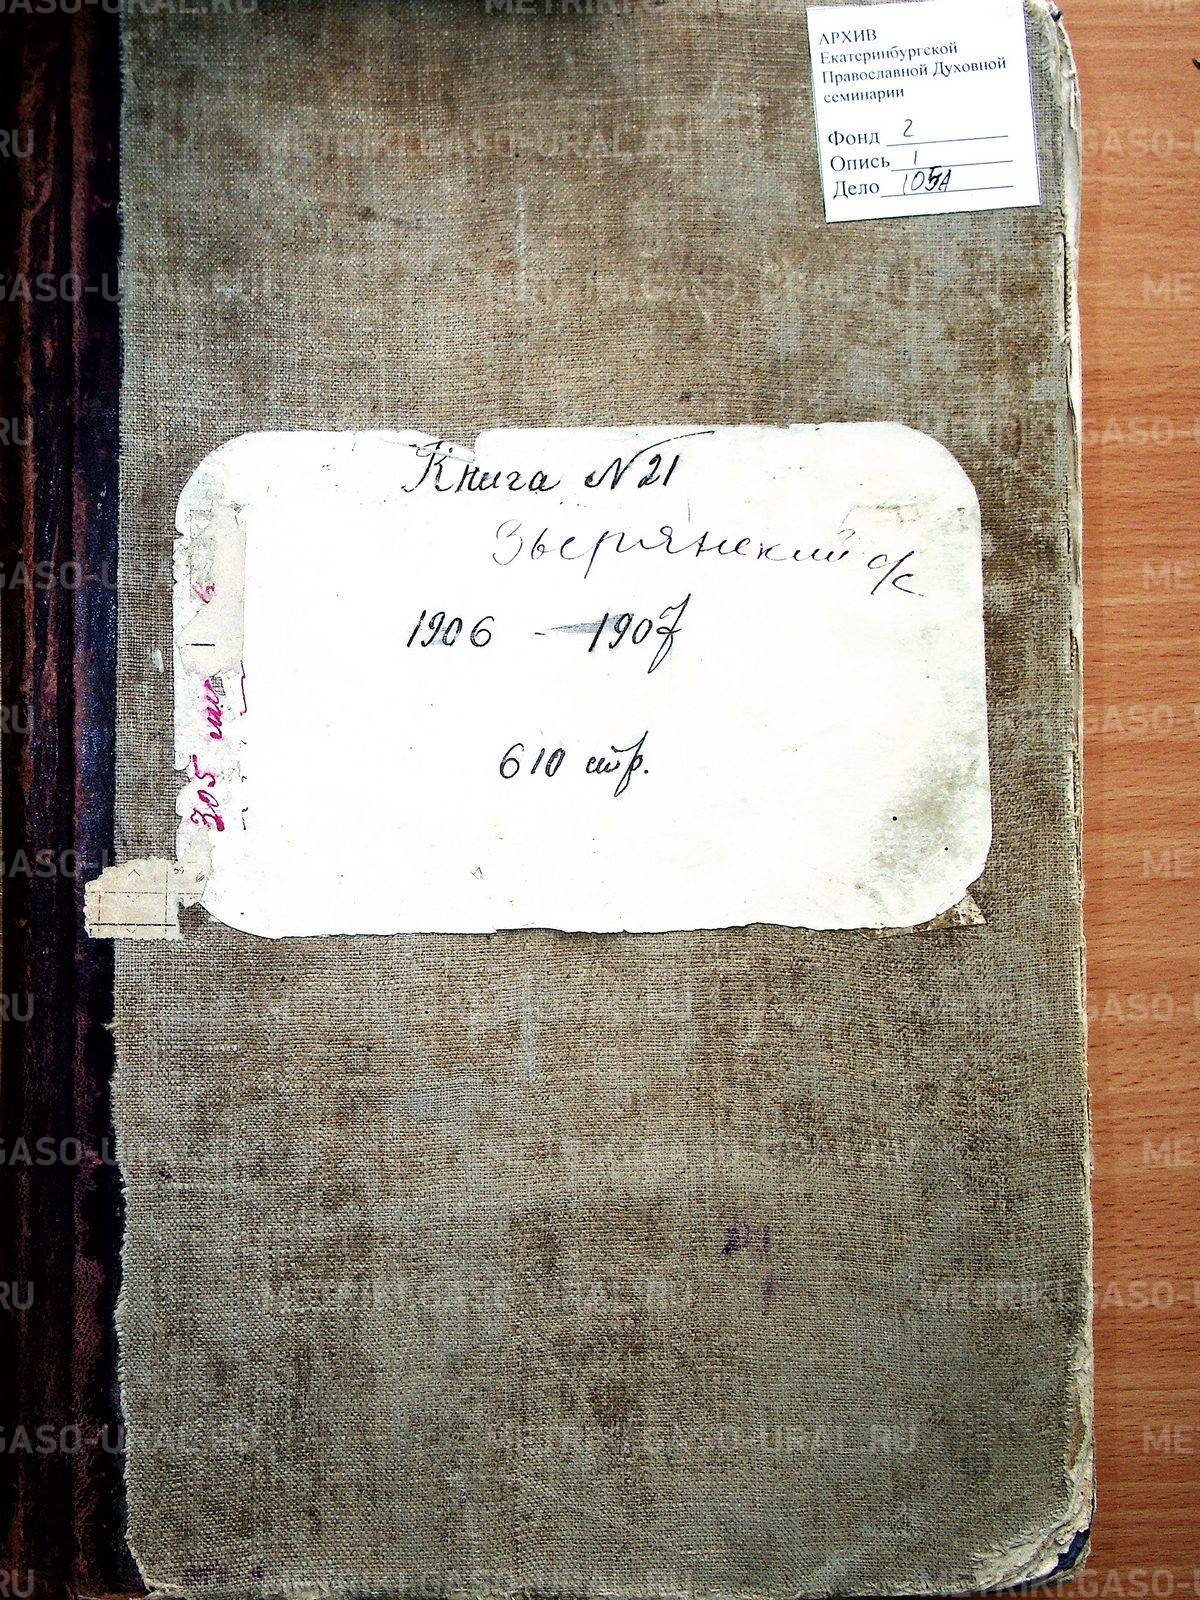 АРХИВ
Екатеринбургской
Православной Духовной
семинарии
Фонд 2
Опись 1
Дело 105А
Книга №21
Зверянский с/с
1906 - 1907
610 стр.
305
METRIKI.GASO-URAL.RU